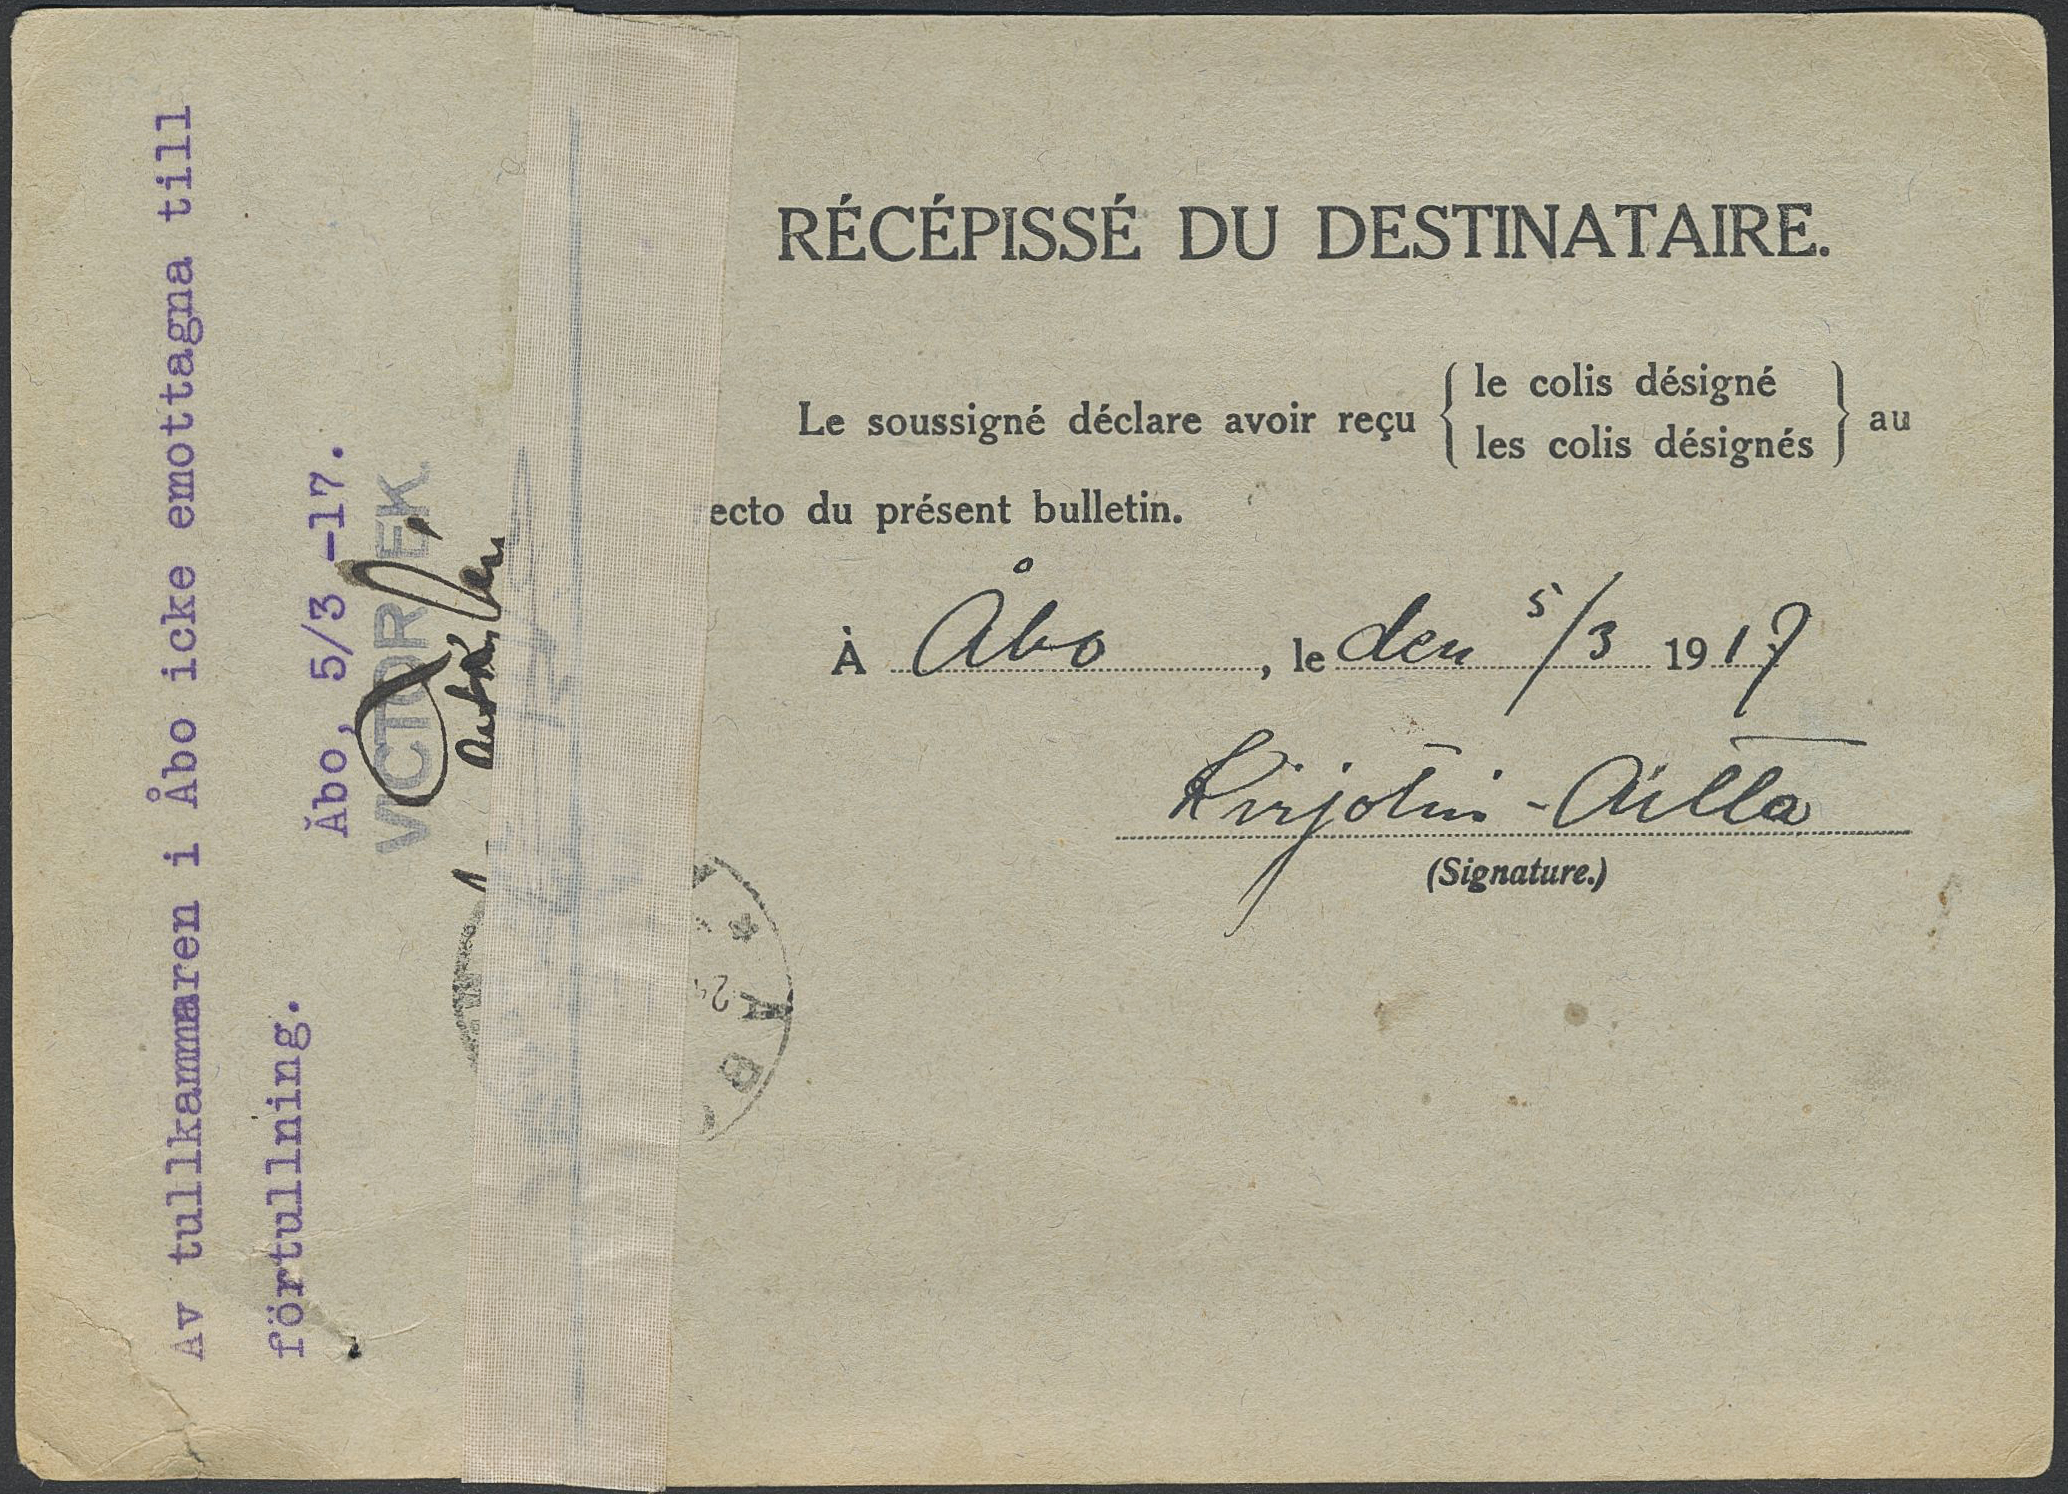 Av tullkammaren i Åbo icke emottagna till
förtullning.
Åbo, 5/3 -17.
VICTOR EK
RÉCÉPISSÉ DU DESTINATAIRE.
Le soussigné déclare avoir reçu { le colis désigné
les colis désignés } au
ecto du présent bulletin.
À Åbo, le den 5/3 1917
Kirjotin-Aitta
(Signature.)
* Å B